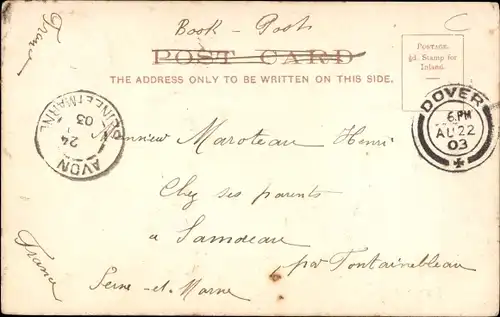 Book - Post
France
POST CARD
THE ADDRESS ONLY TO BE WRITTEN ON THIS SIDE.
POSTAGE.
½d. Stamp for
Inland.
DOVER
6.PM
AU 22
03
AVON
24
03
SEINE ET MARNE
Monsieur Maroteau Henri
Chez ses parents
à Samoreau
par Fontainebleau
Seine-et-Marne
France